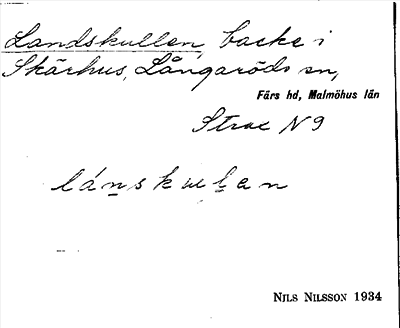 Landskullen, backe i
Skärhus, Långaröds sn,
Färs hd, Malmöhus län
N9
lánskulen
NILS NILSSON 1934